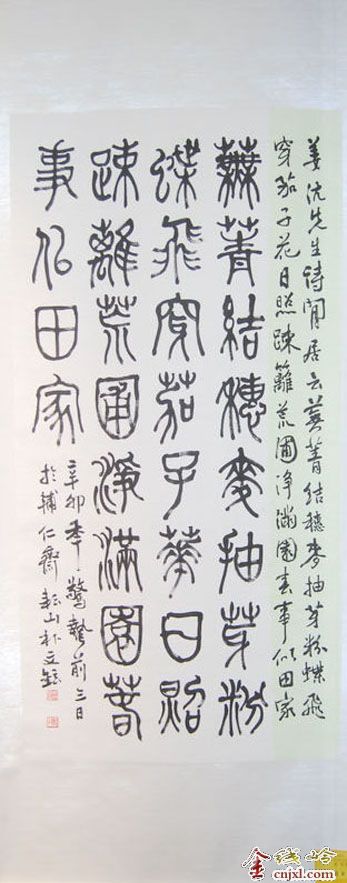 姜沆先生詩閒居云蕪菁結穗麥抽芽粉蝶飛
穿茄子花日照疎籬荒圃浄滿園春事似田家
蕪菁結穗麥抽芽粉
蝶飛穿茄子華日照
疎離荒圃淨滿園春
事佀田家
辛卯季驚蟄前三日
於輔仁齋耘山朴
金线岭
cnjxl.com